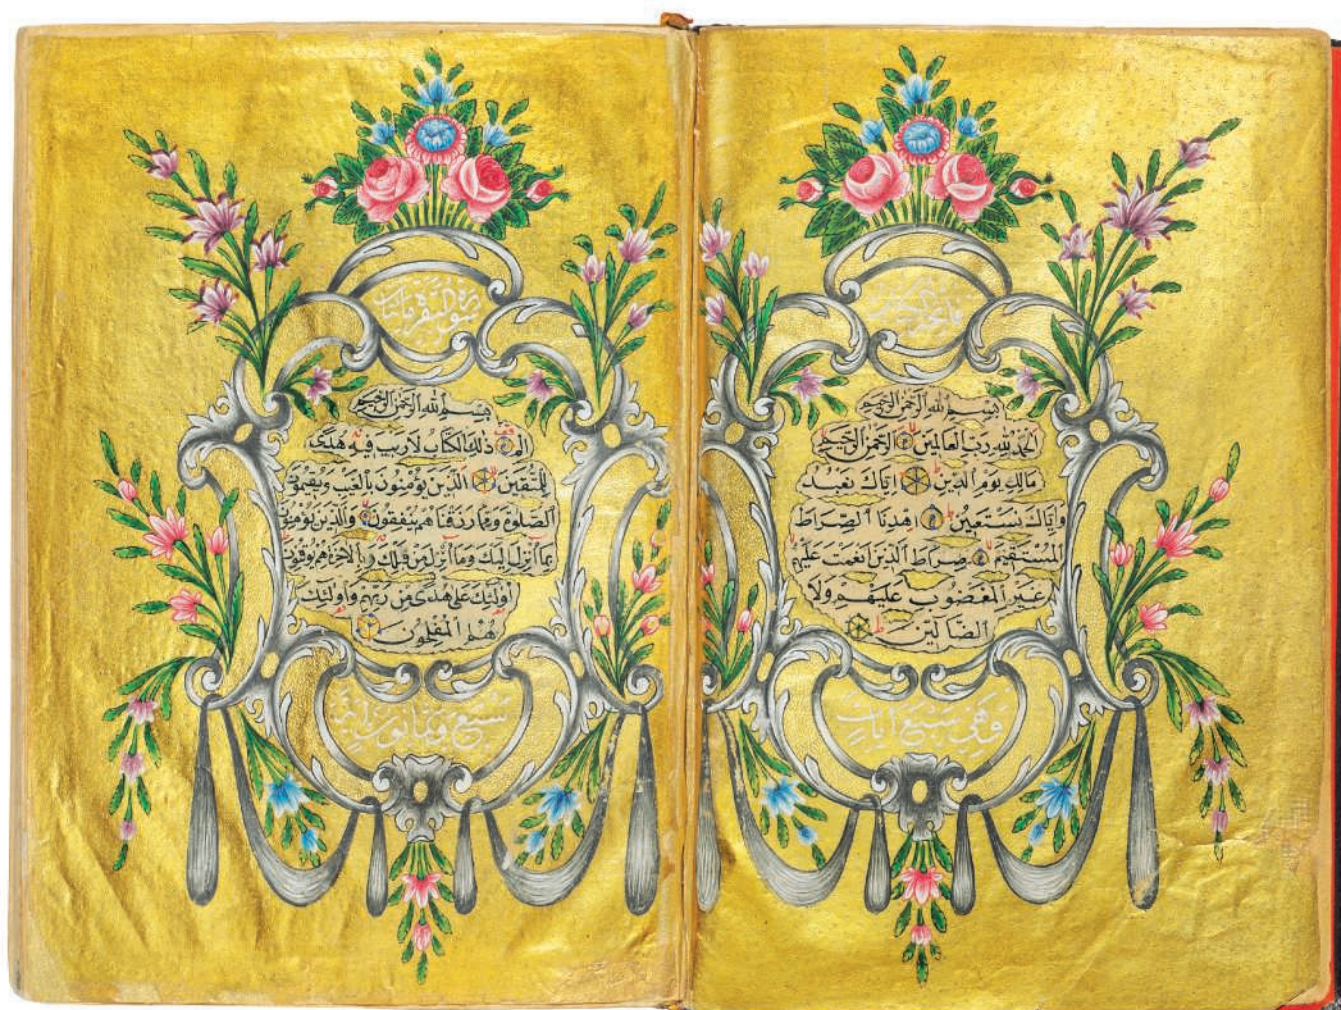 فاتحة
بِسْمِ اللهِ الرَّحْمٰنِ الرَّحِيمِ
اَلْحَمْدُ لِلّٰهِ رَبِّ الْعَالَمِينَ اَلرَّحْمٰنِ الرَّحِيمِ
مَالِكِ يَوْمِ الدِّينِ اِيَّاكَ نَعْبُدُ
وَاِيَّاكَ نَسْتَعِينُ اِهْدِنَا الصِّرَاطَ
الْمُسْتَقِيمَ صِرَاطَ الَّذِينَ اَنْعَمْتَ عَلَيْهِمْ
غَيْرِ الْمَغْضُوبِ عَلَيْهِمْ وَلَا
الضَّالِّينَ
وهي سبع آيات
سورة البقرة مائتان
بِسْمِ اللهِ الرَّحْمٰنِ الرَّحِيمِ
الم ذٰلِكَ الْكِتَابُ لَا رَيْبَ فِيهِ هُدًى
لِلْمُتَّقِينَ اَلَّذِينَ يُؤْمِنُونَ بِالْغَيْبِ وَيُقِيمُونَ
الصَّلٰوةَ وَمِمَّا رَزَقْنَاهُمْ يُنْفِقُونَ وَالَّذِينَ يُؤْمِنُونَ
بِمَا اُنْزِلَ اِلَيْكَ وَمَا اُنْزِلَ مِنْ قَبْلِكَ وَبِالْاٰخِرَةِ هُمْ يُوقِنُونَ
اُولٰئِكَ عَلٰى هُدًى مِنْ رَبِّهِمْ وَاُولٰئِكَ
هُمُ الْمُفْلِحُونَ
سبع وثمانون آية